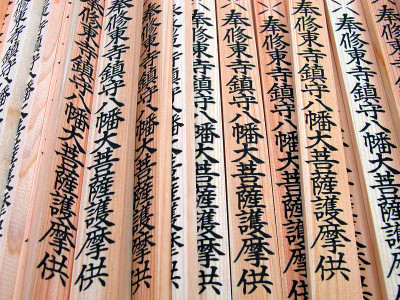 奉修東寺鎮守八幡大菩薩護摩供
奉修東寺鎮守八幡大菩薩護摩供
奉修東寺鎮守八幡大菩薩護摩供
奉修東寺鎮守八幡大菩薩護摩供
奉修東寺鎮守八幡大菩薩護摩供
奉修東寺鎮守八幡大菩薩護摩供
奉修東寺鎮守八幡大菩薩護摩供
奉修東寺鎮守八幡大菩薩護摩供